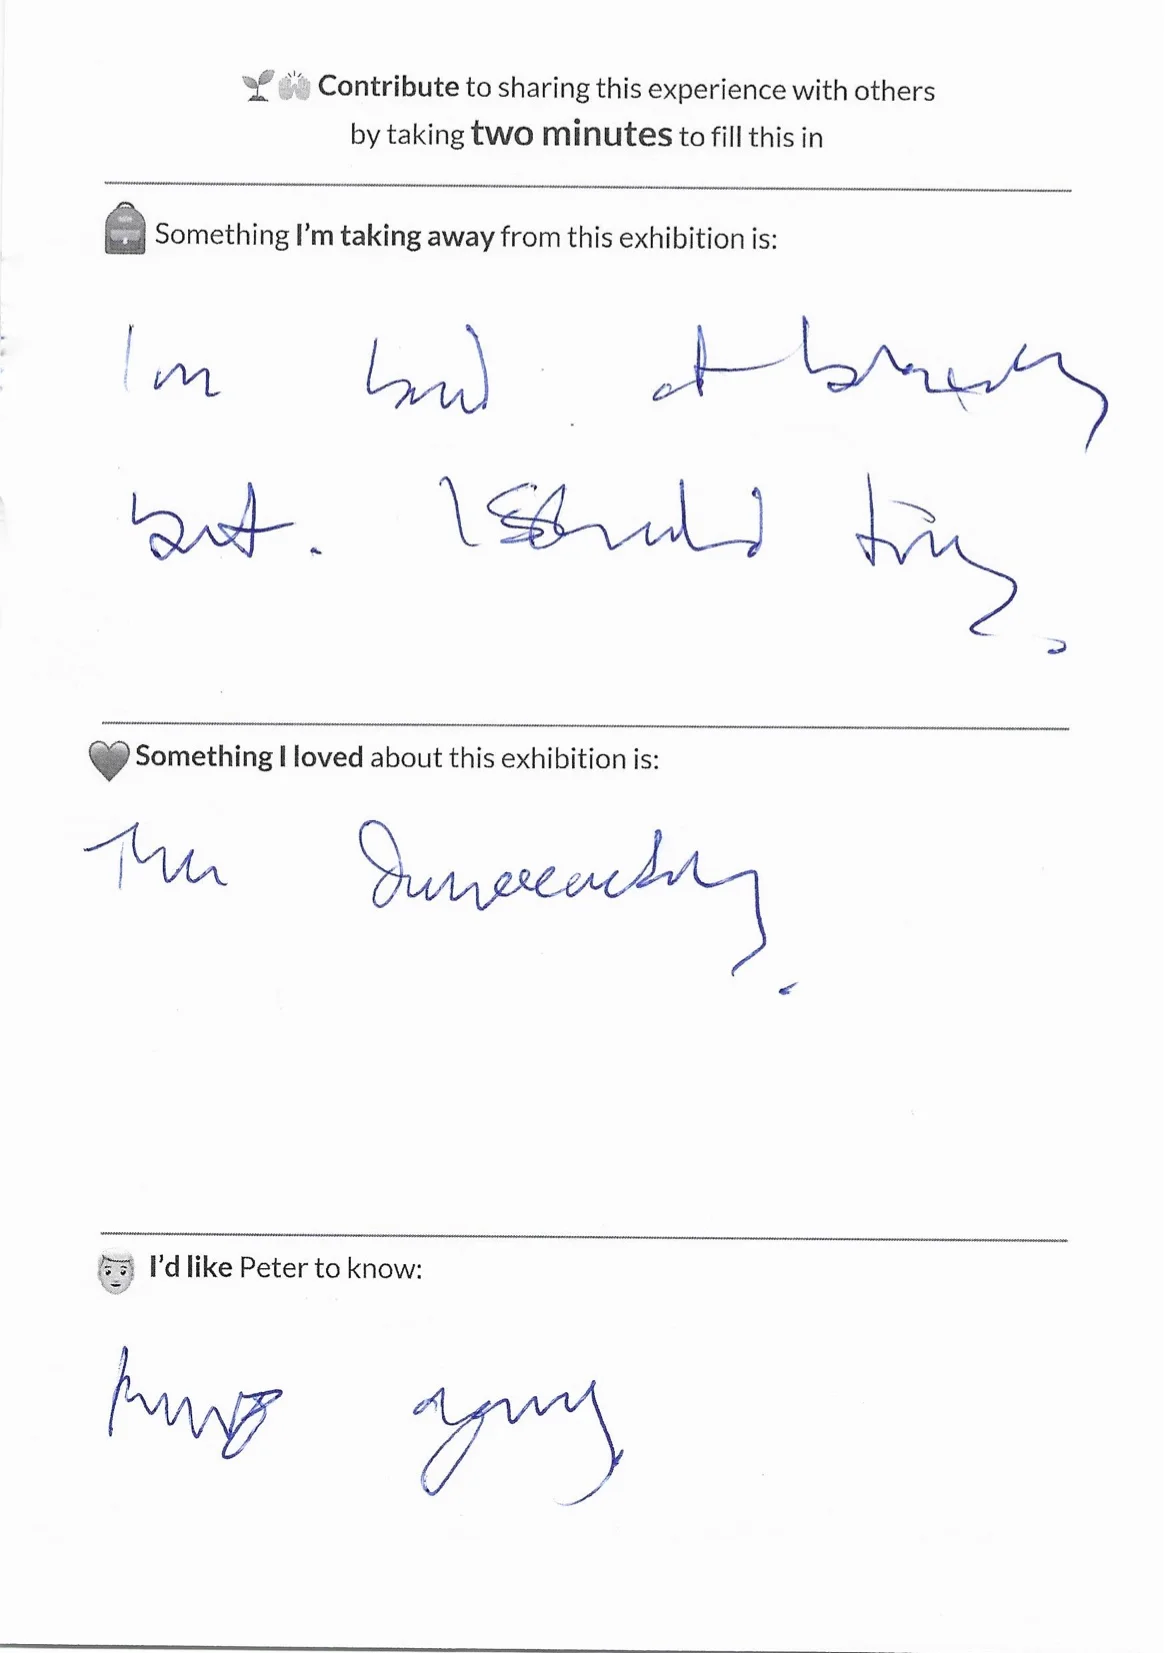 Contribute to sharing this experience with others
by taking two minutes to fill this in
Something I'm taking away from this exhibition is:
Im bad at
but. I should try.
Something I loved about this exhibition is:
The
I'd like Peter to know: